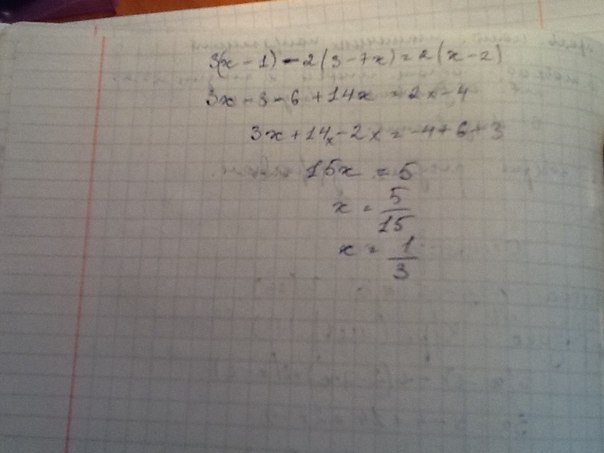 3(x - 1) - 2(3 - 7x) = 2(x - 2)
3x - 3 - 6 + 14x = 2x - 4
3x + 14x - 2x = -4 + 6 + 3
15x = 5
x = 5/15
x = 1/3